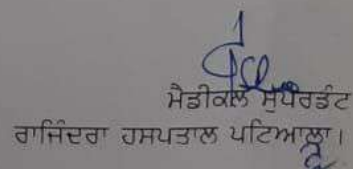 ਮੈਡੀਕਲ ਸੁਪਰਡੰਟ
ਰਾਜਿੰਦਰਾ ਹਸਪਤਾਲ ਪਟਿਆਲਾ।